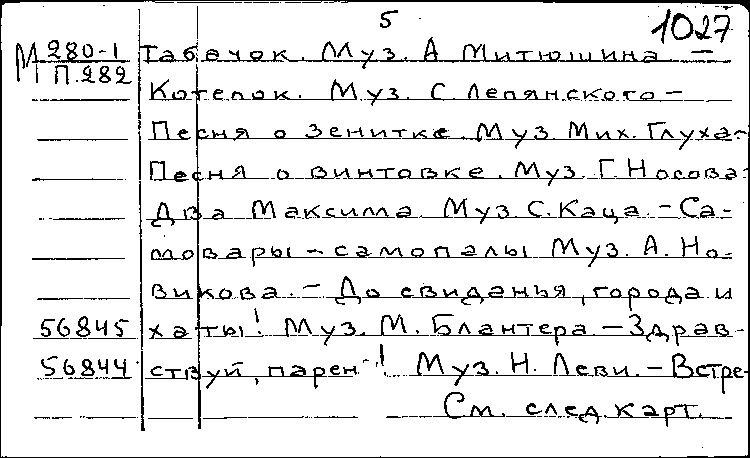 5 1027
М 280-1 Табачок. Муз. А Митюшина –
П.282 Котелок. Муз. С. Лепянского –
Песня о зенитке. Муз. Мих. Глуха-
Песня о винтовке. Муз. Г. Носова-
Два Максима. Муз. С. Каца. – Са-
мовары – самопалы Муз. А. Но-
викова. – До свиданья, города и
56845 хаты! Муз. М. Блантера – Здрав-
56844 ствуй, парень! Муз. Н. Леви. – Встре-
См. след. карт.